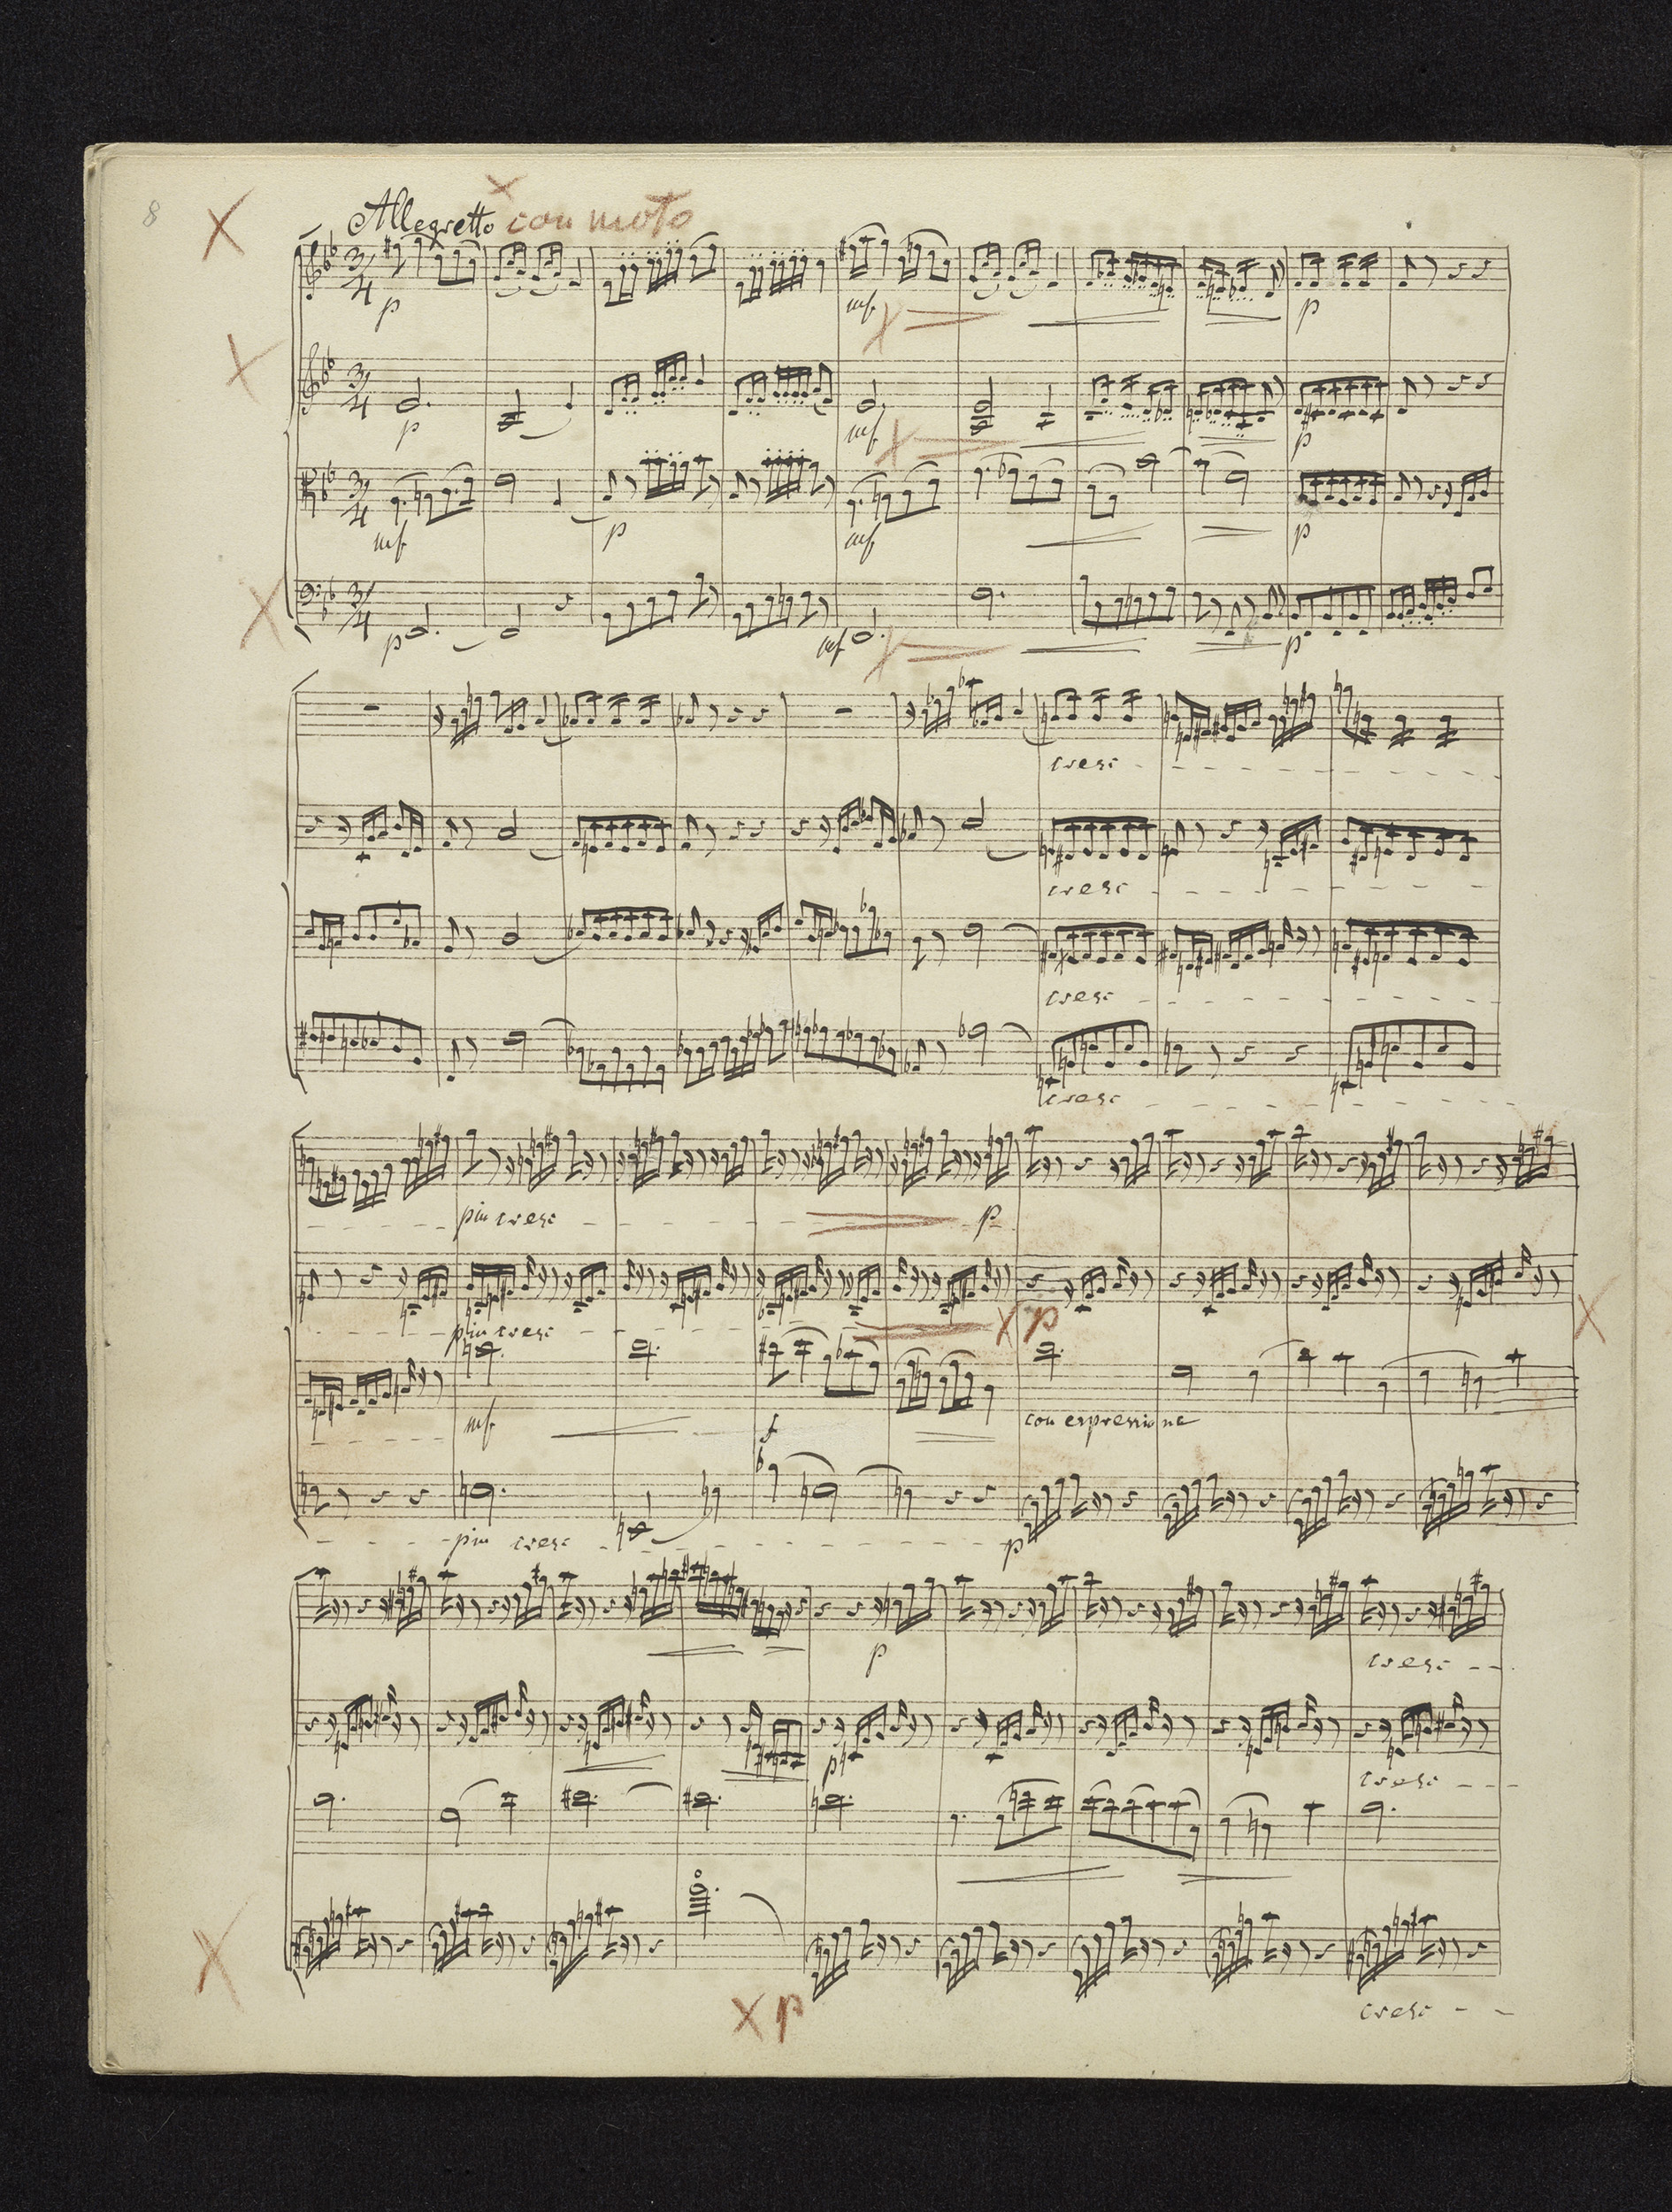 8
Allegretto con moto
3/4 p mf p
3/4 p mf p
3/4 mf p mf p
3/4 p mf p
cresc
cresc
cresc
cresc
piu cresc p
piu cresc p
mf f con espressione
piu cresc p
p cresc
p cresc
cresc
p